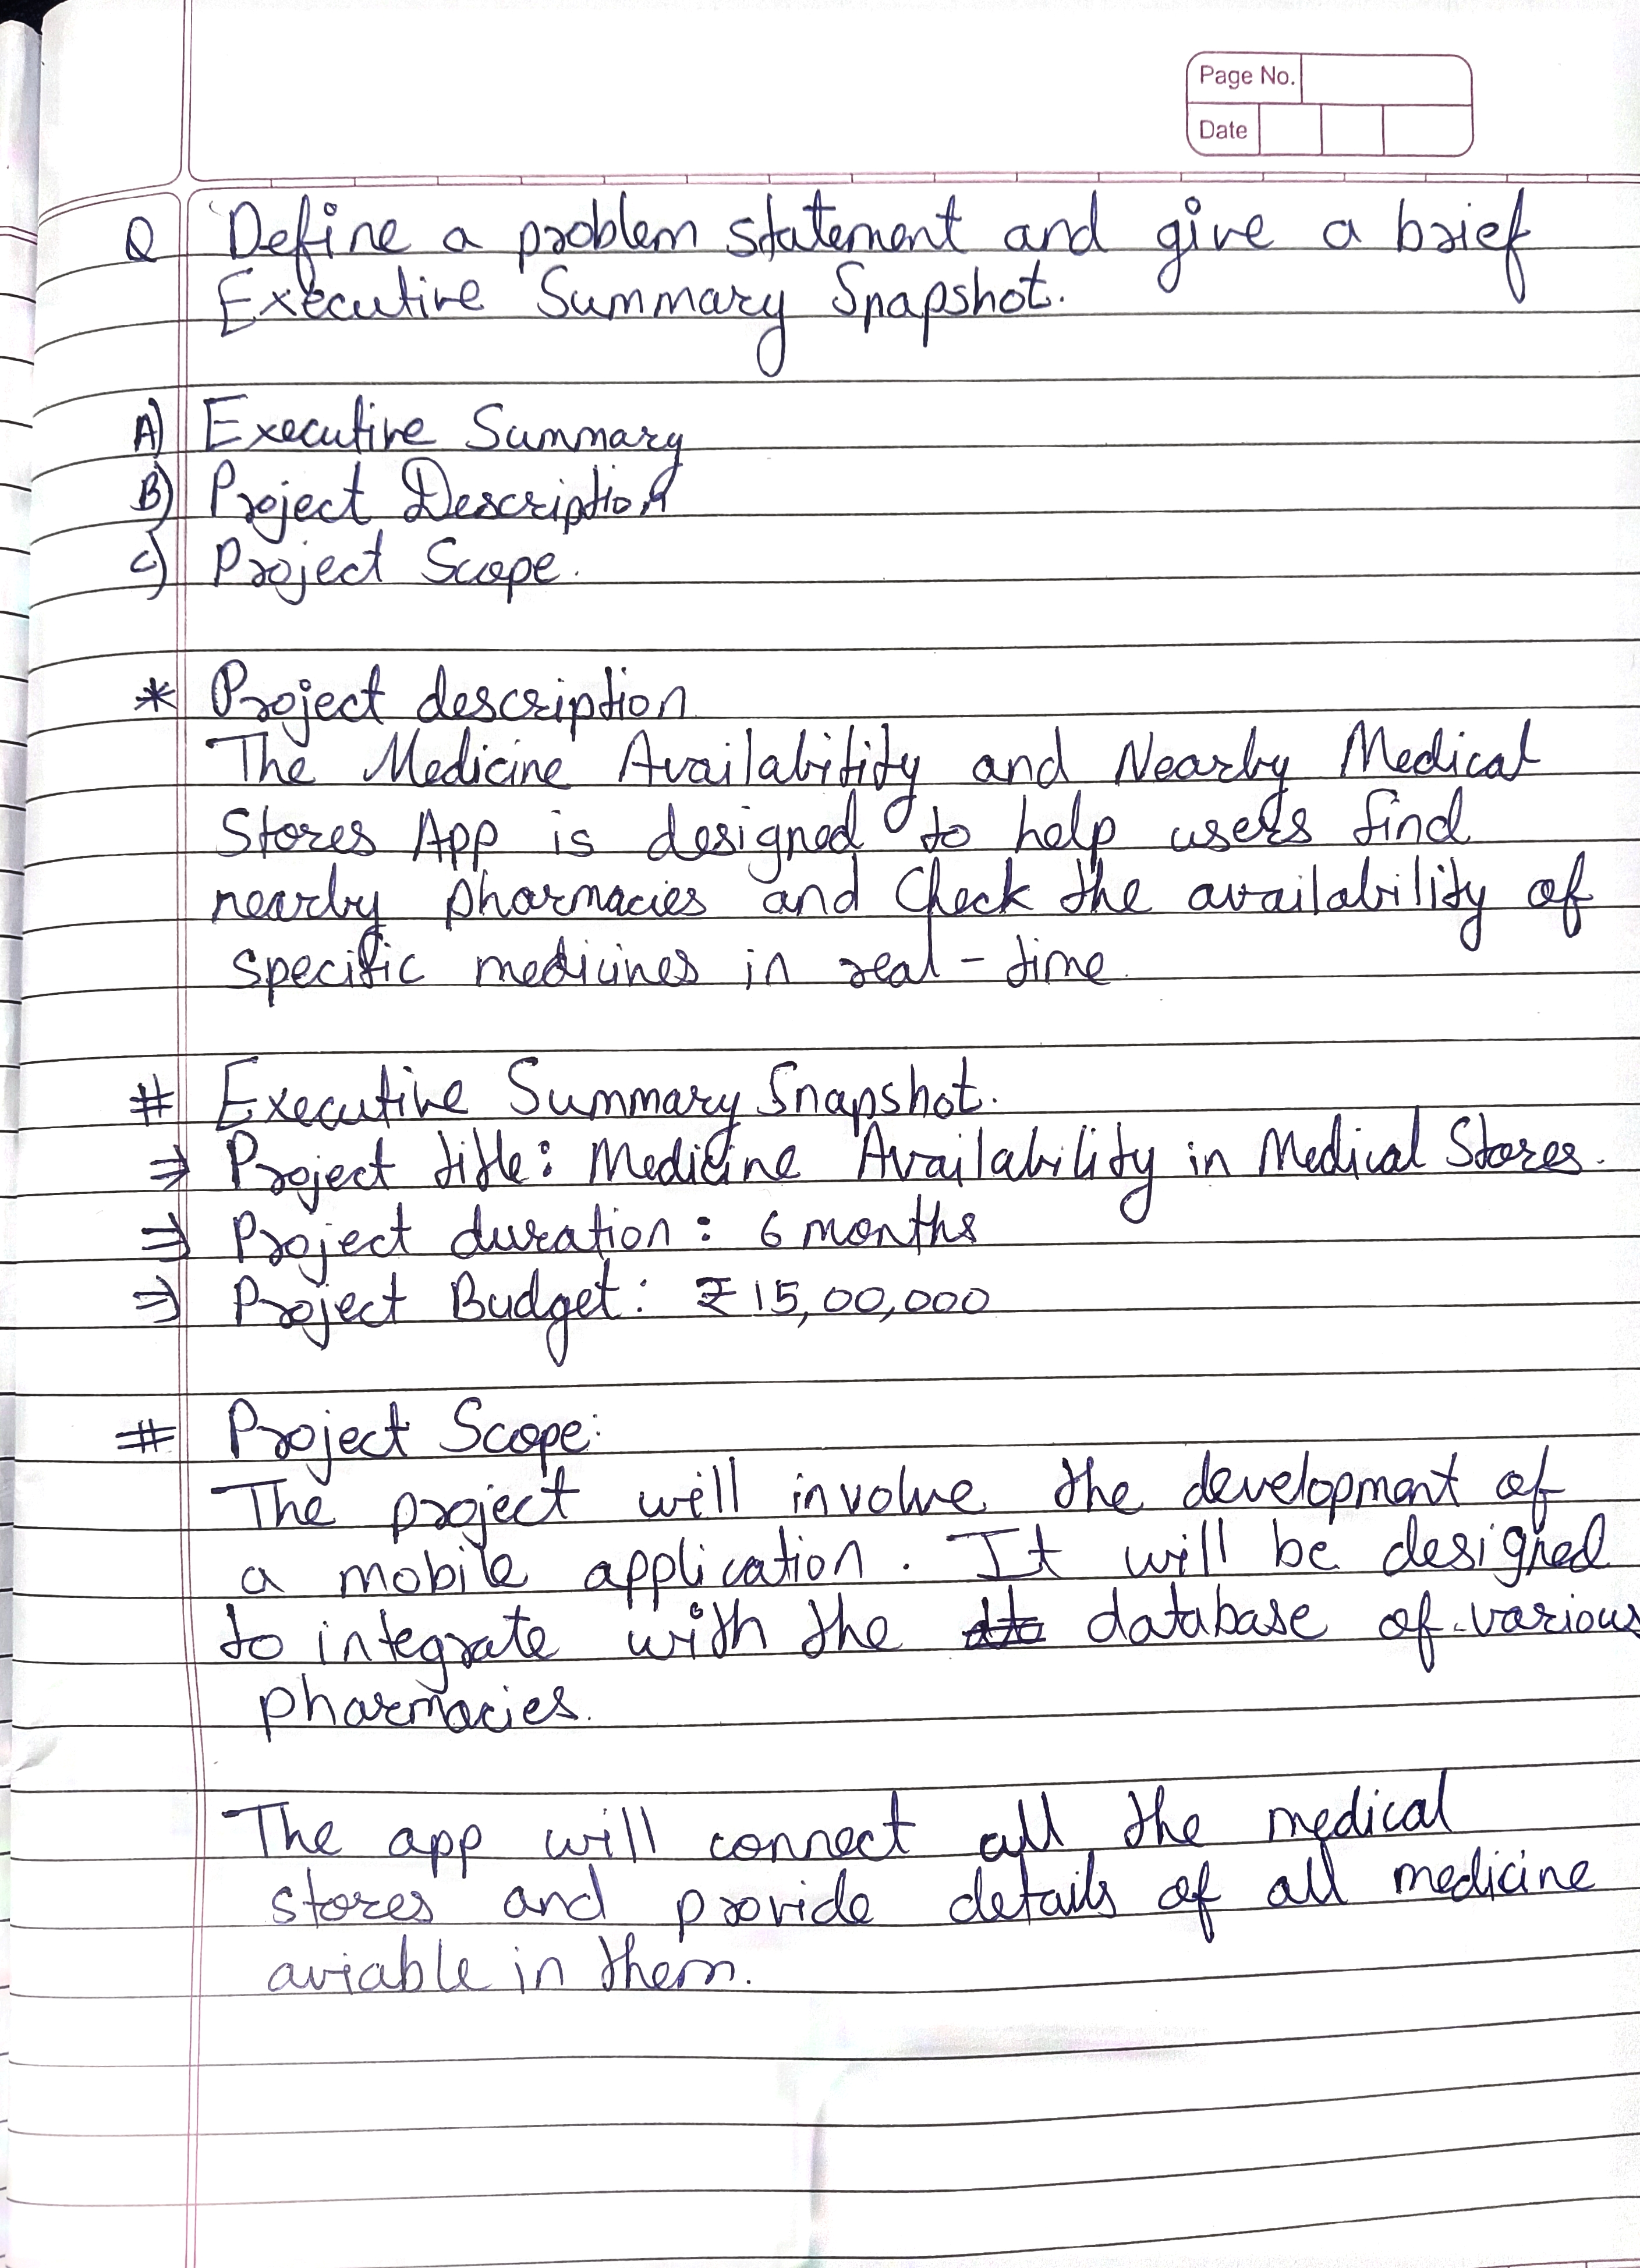 Page No.
Date
Q Define a problem statement and give a brief
Executive Summary Snapshot.
A) Executive Summary
B) Project Description
C) Project Scope.
* Project description
The Medicine Availability and Nearby Medical
Stores App is designed to help users find
nearby pharmacies and Check the availability of
specific medicines in real-time
# Executive Summary Snapshot.
⇒ Project title: Medicine Availability in Medical Stores.
⇒ Project duration: 6 months
⇒ Project Budget: ₹15,00,000
# Project Scope:
The project will involve the development of
a mobile application. It will be designed
to integrate with the database of various
pharmacies.
The app will connect all the medical
stores and provide details of all medicine
aviable in them.